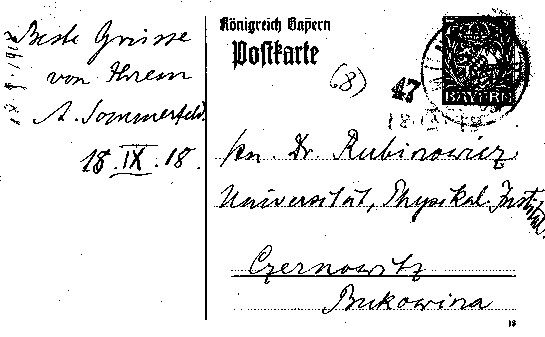 Beste Grüsse
von Ihrem
A. Sommerfeld.
18. IX. 18.
Königreich Bayern
Postkarte
(8)
47
BAYERN
Hn. Dr. Rubinowicz
Universität, Physikal. Institut.
Czernowitz
Bukowina